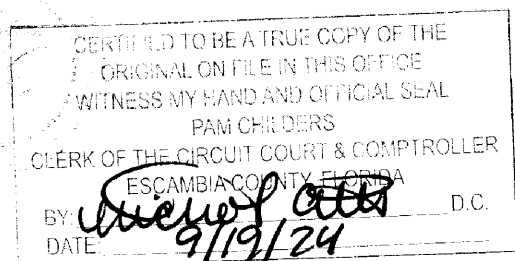 CERTIFIED TO BE A TRUE COPY OF THE
ORIGINAL ON FILE IN THIS OFFICE
WITNESS MY HAND AND OFFICIAL SEAL
PAM CHILDERS
CLERK OF THE CIRCUIT COURT & COMPTROLLER
ESCAMBIA COUNTY, FLORIDA
BY: D.C.
DATE: 9/19/24